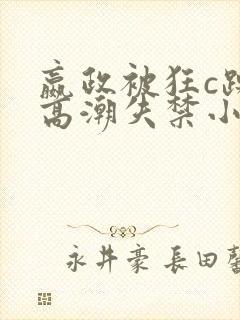 嬴政被狂c
高潮失禁小
永井豪長田馨